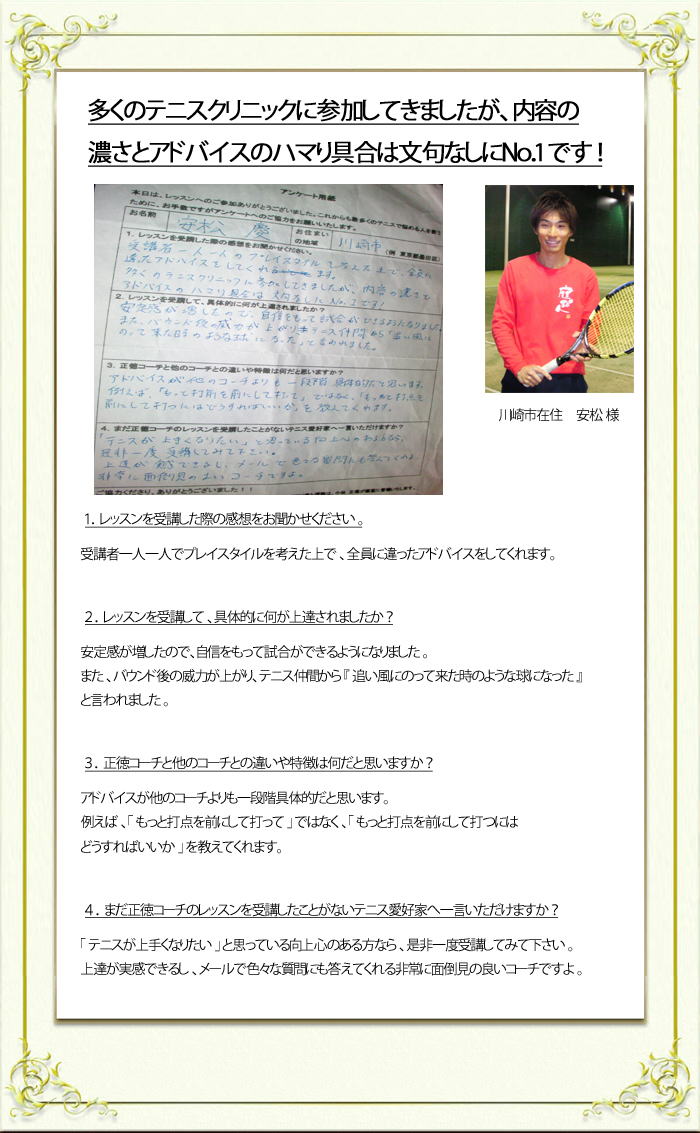 多くのテニスクリニックに参加してきましたが、内容の
濃さとアドバイスのハマり具合は文句なしにNo.1です！
アンケート用紙
本日は、レッスンへのご参加ありがとうございました。これからも数多くのテニスで悩める人を救う
ために、お手数ですがアンケートへのご協力をお願いいたします。
お名前 安松 慶 お住まいの地域 川崎市 (例 東京都墨田区)
1. レッスンを受講した際の感想をお聞かせください。
受講者一人一人のプレイスタイルを考えた上で、全員に
違ったアドバイスをしてくれます。
多くのテニスクリニックに参加してきましたが、内容の濃さと
アドバイスのハマり具合は文句なしにNo.1です!
2. レッスンを受講して、具体的に何が上達されましたか?
安定感が増したので、自信をもって試合ができるようになりました。
また、バウンド後の威力が上がり、テニス仲間から「追い風に
のって来た時のような球になった」と言われました。
3. 正徳コーチと他のコーチとの違いや特徴は何だと思いますか?
アドバイスが他のコーチよりも一段階具体的だと思います。
例えば、「もっと打点を前にして打って」ではなく、「もっと打点を
前にして打つにはどうすればいいか」を教えてくれます。
4. まだ正徳コーチのレッスンを受講したことがないテニス愛好家へ一言いただけますか?
「テニスが上手くなりたい」と思っている向上心のある方なら、
是非一度受講してみて下さい。
上達が実感できるし、メールで色々な質問にも答えてくれる
非常に面倒見のよいコーチですよ。
ご協力くださり、ありがとうございました!!
川崎市在住 安松 様
1. レッスンを受講した際の感想をお聞かせください。
受講者一人一人でプレイスタイルを考えた上で、全員に違ったアドバイスをしてくれます。
2. レッスンを受講して、具体的に何が上達されましたか？
安定感が増したので、自信をもって試合ができるようになりました。
また、バウンド後の威力が上がり、テニス仲間から『追い風にのって来た時のような球になった』
と言われました。
3. 正徳コーチと他のコーチとの違いや特徴は何だと思いますか？
アドバイスが他のコーチよりも一段階具体的だと思います。
例えば、「もっと打点を前にして打って」ではなく、「もっと打点を前にして打つには
どうすればいいか」を教えてくれます。
4. まだ正徳コーチのレッスンを受講したことがないテニス愛好家へ一言いただけますか？
「テニスが上手くなりたい」と思っている向上心のある方なら、是非一度受講してみて下さい。
上達が実感できるし、メールで色々な質問にも答えてくれる非常に面倒見の良いコーチですよ。